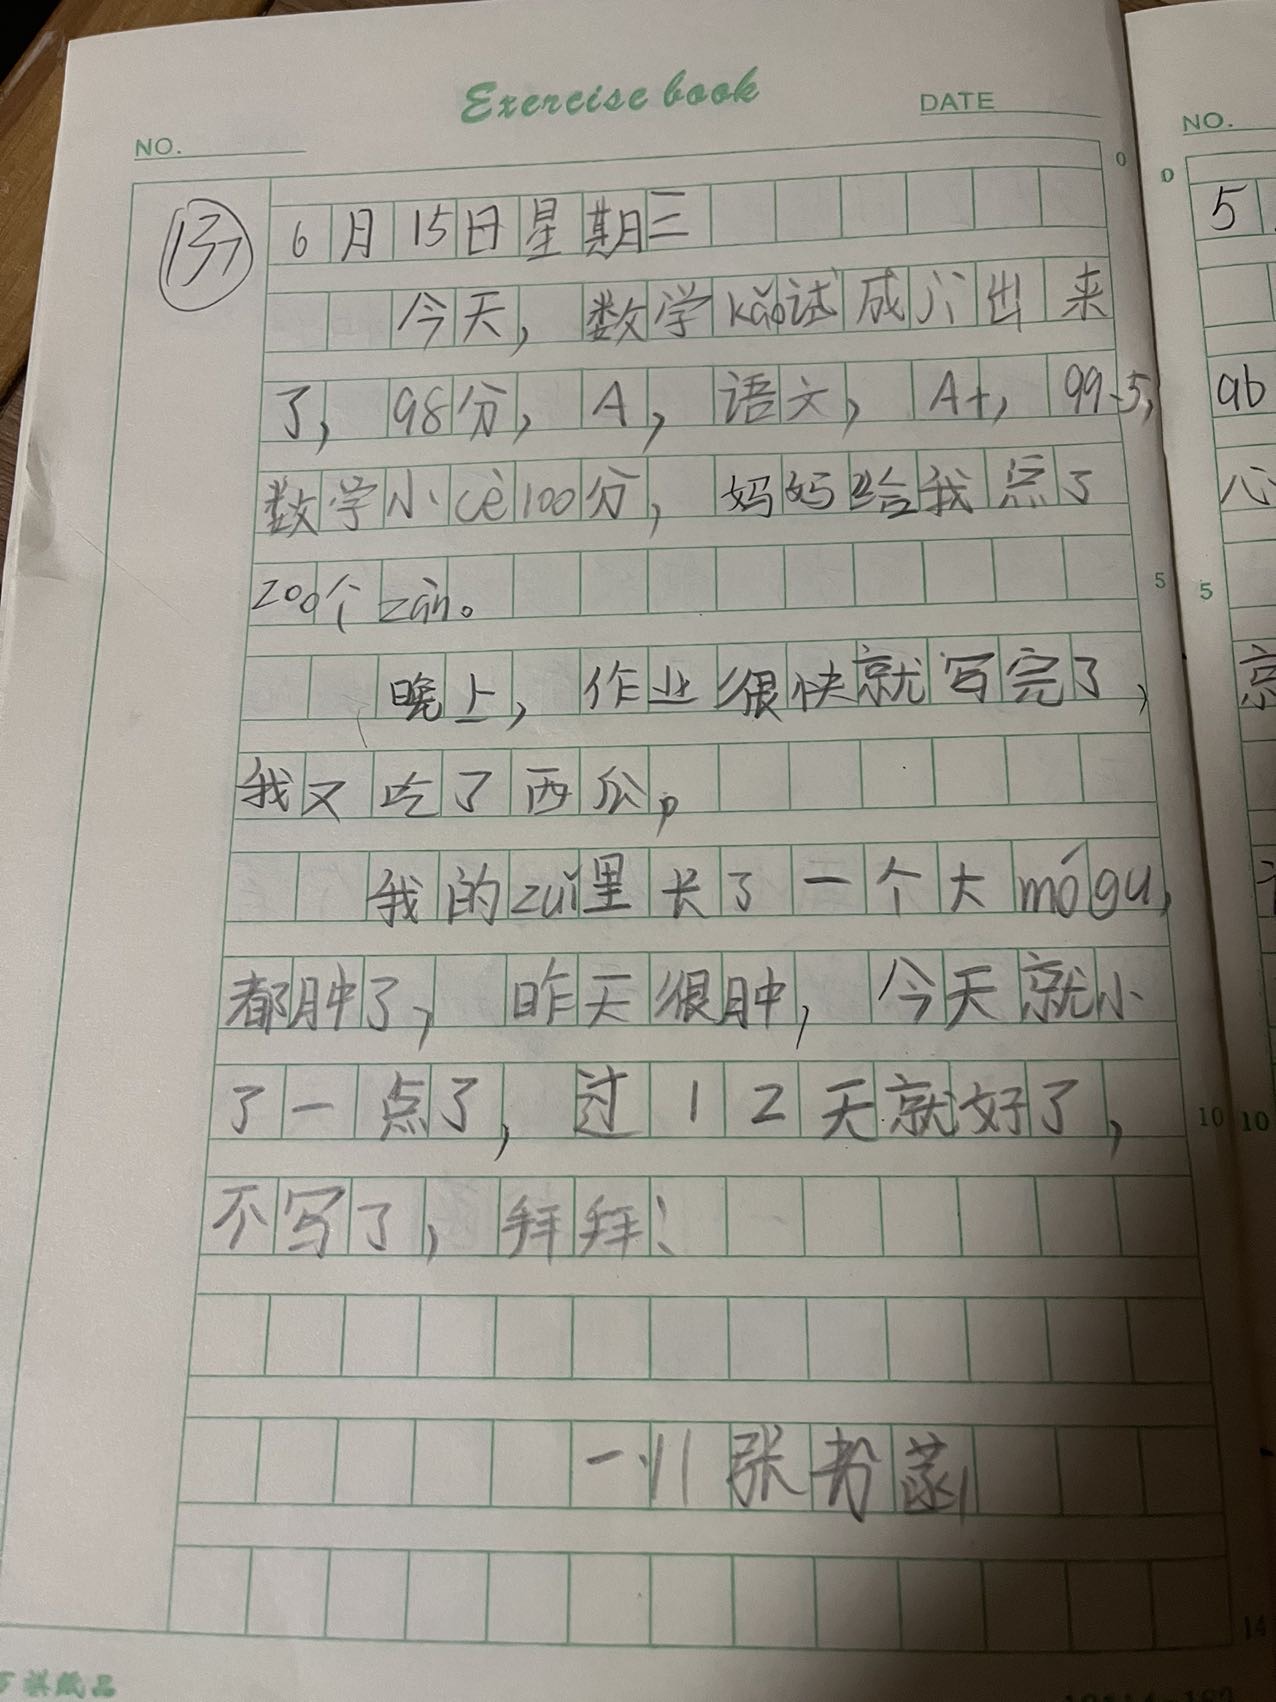 Exercise book
NO.
DATE
137
6月15日星期三
今天，数学kǎo试成六出来
了，98分，A，语文，A+，99.5，
数学小cè100分，妈妈给我点了
200个zàn。
晚上，作业很快就写完了，
我又吃了西瓜，
我的zuǐ里长了一个大mógu，
都肿了，昨天很肿，今天就小
了一点了，过12天就好了，
不写了，拜拜！
张
0
5
10
14
NO.
0
5
ab
心
5
京
10
祺纸品